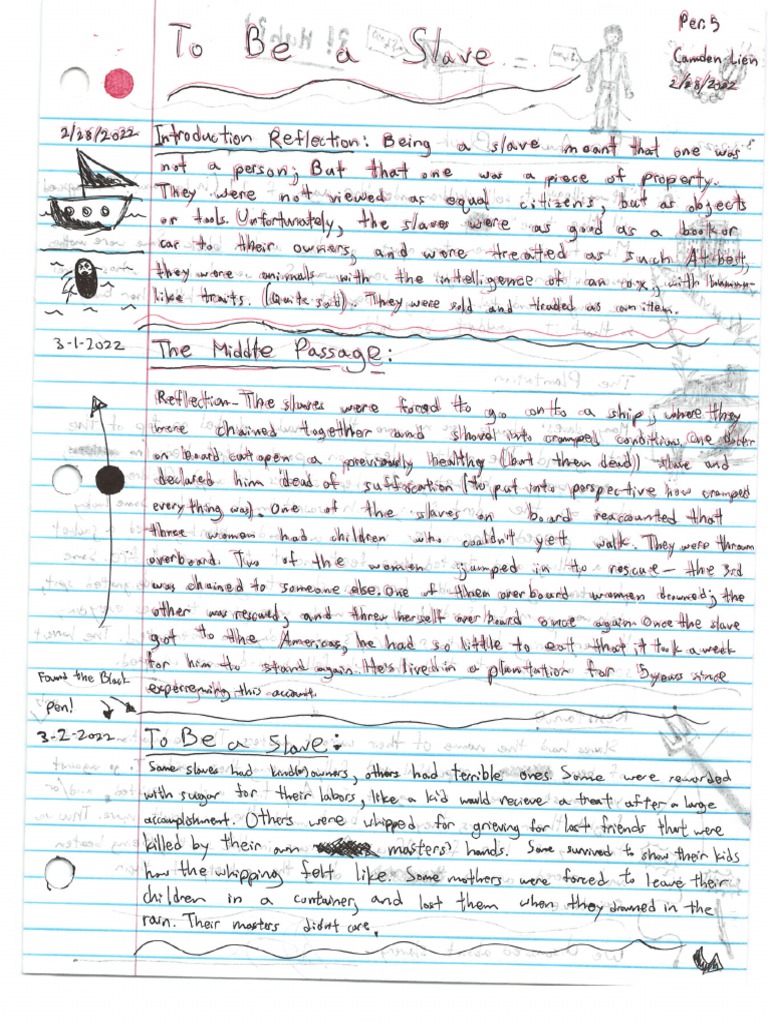 Per. 5
To Be a Slave
Camden Lien
2/28/2022
2/28/2022
Introduction Reflection: Being a slave meant that one was
not a person; But that one was a piece of property.
They were not viewed as equal citizens, but as objects
or tools. Unfortunately, the slaves were as good as a book or
car to their owners, and were treated as such. At best,
they were animals with the intelligence of an ox, with human-
like traits. (Quite sad). They were sold and traded as an item.
3-1-2022
The Middle Passage:
Reflection- The slaves were forced to go onto a ship, where they
were chained together and shovel into cramped condition. One doctor
on board cut open a previously healthy (but then dead) slave and
declared him dead of suffocation (to put into perspective how cramped
everything was). One of the slaves on board reaccounted that
three women had children who couldn't yet walk. They were thrown
overboard. Two of the women jumped in to rescue - the 3rd
was chained to someone else. One of them overboard women drowned; the
other was rescued, and threw herself over board once again. Once the slave
got to the Americas, he had so little to eat that it took a week
for him to stand again. He's lived in a plantation for 5 years since
this account.
Found the Black
Pen!
3-2-2022
To Be a Slave:
Some slaves had kind(er) owners, others had terrible ones. Some were rewarded
with sugar for their labors, like a kid would recieve a treat after a large
accomplishment. Others were whipped for grieving for lost friends that were
killed by their own masters' hands. Some survived to show their kids
how the whipping felt like. Some mothers were forced to leave their
children in a container, and lost them when they drowned in the
rain. Their masters didnt care.